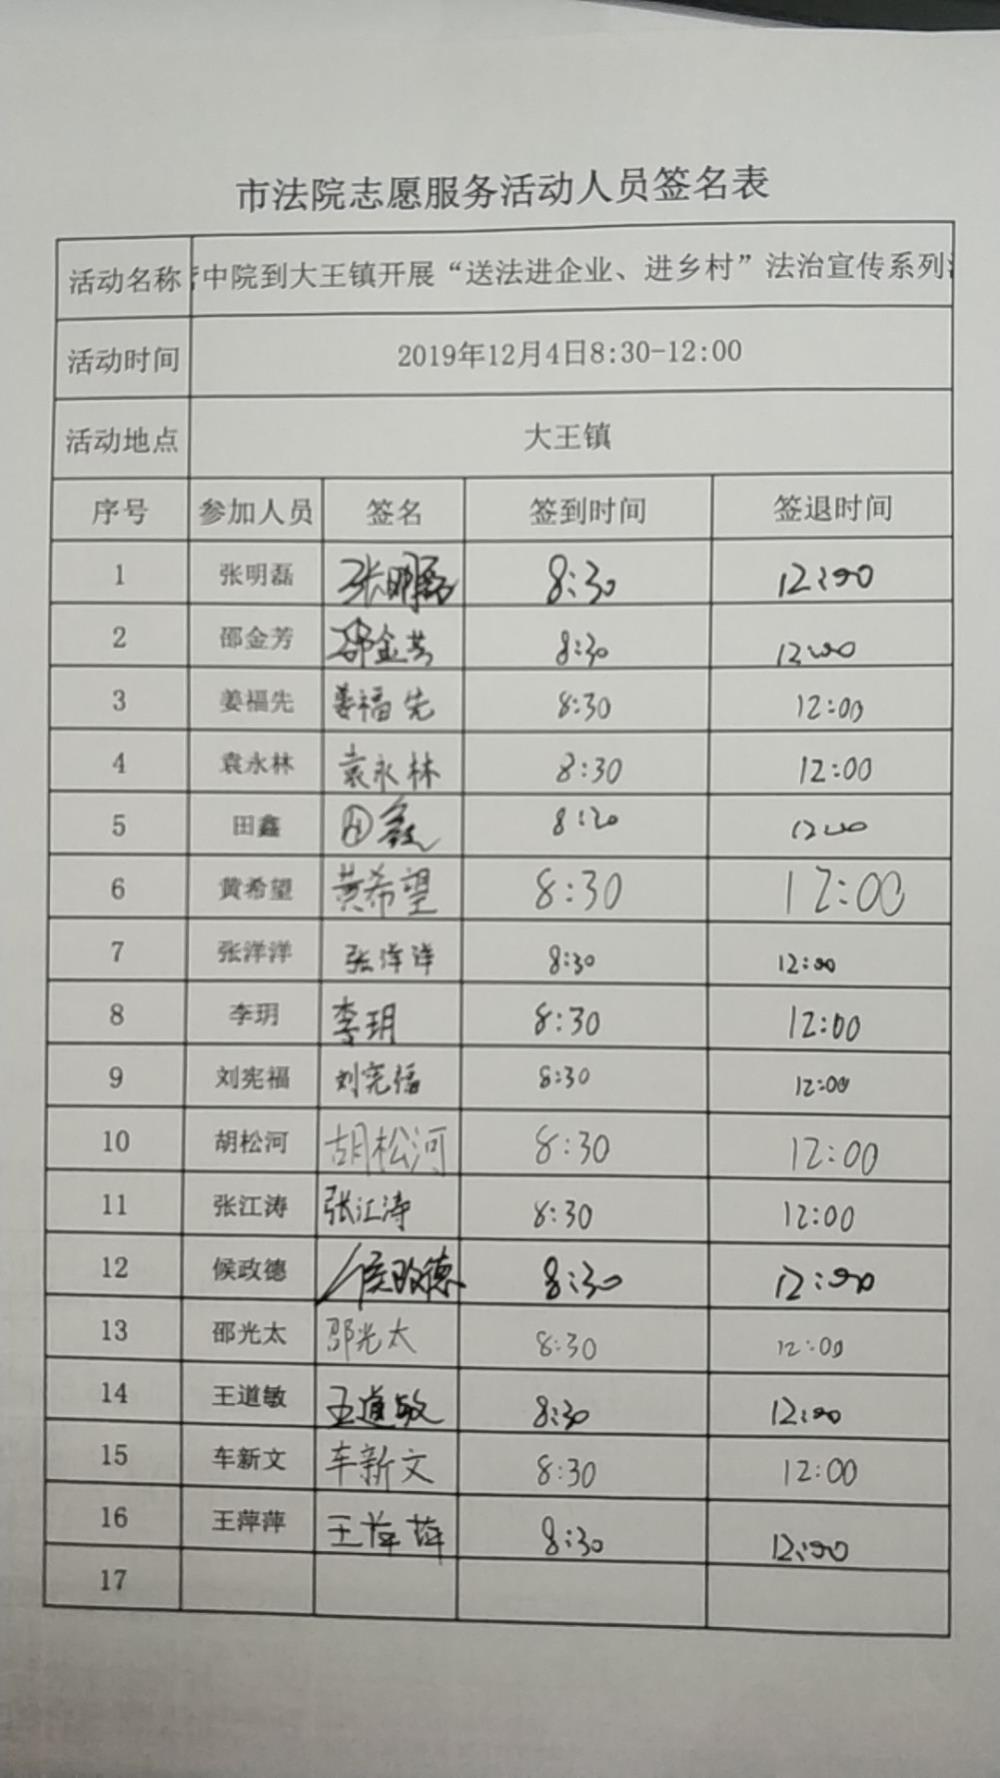 市法院志愿服务活动人员签名表
活动名称 中院到大王镇开展“送法进企业、进乡村”法治宣传系列
活动时间 2019年12月4日8:30-12:00
活动地点 大王镇
序号 参加人员 签名 签到时间 签退时间
1 张明磊 张明磊 8:30 12:00
2 邵金芳 邵金芳 8:30 12:00
3 姜福先 姜福先 8:30 12:00
4 袁永林 袁永林 8:30 12:00
5 田鑫 田鑫 8:30 12:00
6 黄希望 黄希望 8:30 12:00
7 张洋洋 张洋洋 8:30 12:00
8 李玥 李玥 8:30 12:00
9 刘宪福 刘宪福 8:30 12:00
10 胡松河 胡松河 8:30 12:00
11 张江涛 张江涛 8:30 12:00
12 候政德 侯政德 8:30 12:00
13 邵光太 邵光太 8:30 12:00
14 王道敏 王道敏 8:30 12:00
15 车新文 车新文 8:30 12:00
16 王萍萍 王萍萍 8:30 12:00
17